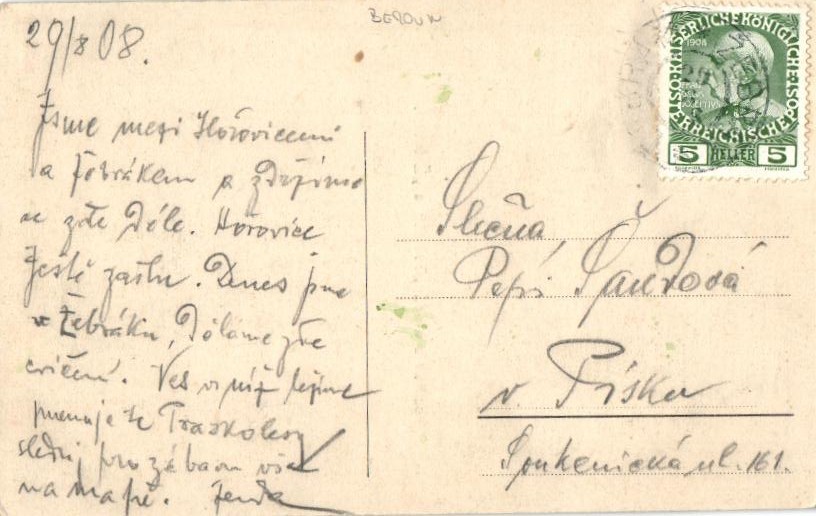 BEROUN
29/8 08.
Jsme mezi Hořovicemi
a Žebrákem a zdržíme
se zde déle. Hořovice
ještě zastu. Dnes jsme
v Žebráku, děláme zde
cvičení. Ves v níž ležíme
jmenuje se Praskolesy
sleduj pro zábavu vše
na mapě. Jenda
KAISERLICHE KÖNIGLICHE
ÖSTERREICHISCHE POST
1908
5 HELLER 5
Slečna
Pepi Šandová
v Písku
Soukenická ul. 161.